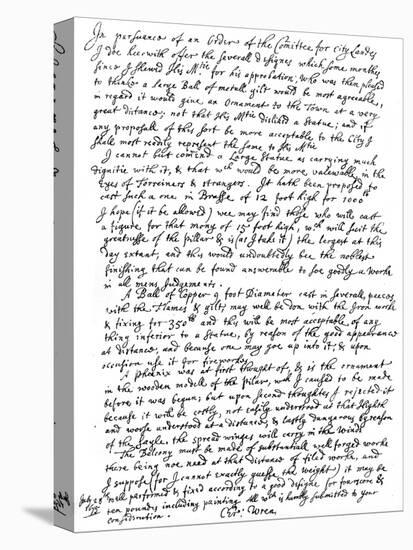 In pursuance of an Order of the Comittee for City Landes
I doe heerwith offer the severall designes which some monthes
since I shewed His Mtie for his approbation, who was then pleased
to thinke a large Ball of metall gilt would be most agreeable,
in regard it would give an Ornament to the Town at a very
great distance; not that His Mtie disliked a Statue; and if
any proposall of this sort be more acceptable to the City I
shall most readily represent the same to His Mtie
I cannot but comend a Large Statue as carrying much
dignitie with it, & that wch would be more valewable in the
Eyes of Forreiners & strangers. It hath been proposed to
cast such a one in Brasse of 12 foot high for 1000lb
I hope (if it be allowed) wee may find those who will cast
a figure for that mony of 15 foot high, wch will suit the
greatnesse of the pillar & is (as I take it) the largest at this
day extant; and this would undoubtedly bee the noblest
finishing that can be found answerable to soe goodly a worke
in all mens Judgements.
A Ball of Copper 9 foot Diameter cast in severall peeces
with the Flames & gilt, may well be don with the Iron worke
& fixing for 350lb and this will be most acceptable of any
thing inferior to a Statue, by reason of the good appearance
at distance, and because one may goe up into it; & upon
occasion use it for fireworkes.
A phœnix was at first thought of, & is the ornament
in the wooden modell of the pillar, wch I caused to be made
before it was begun; but upon second thoughtes I rejected it
because it will be costly, not easily understood at that Highth
and worse understood at a distance, & lastly dangerous by reason
of the sayle the spread winges will carry in the Winde
The Balcony must be made of substantiall well forged worke
there being noe need at that distance of filed worke, and
I suppose (for I cannot exactly guesse the weight) it may be
well performed & fixed according to a good designe for fourscore &
ten poundes including painting. All wch is humbly submitted to your
consideration.
July 28th
Chr: Wren.